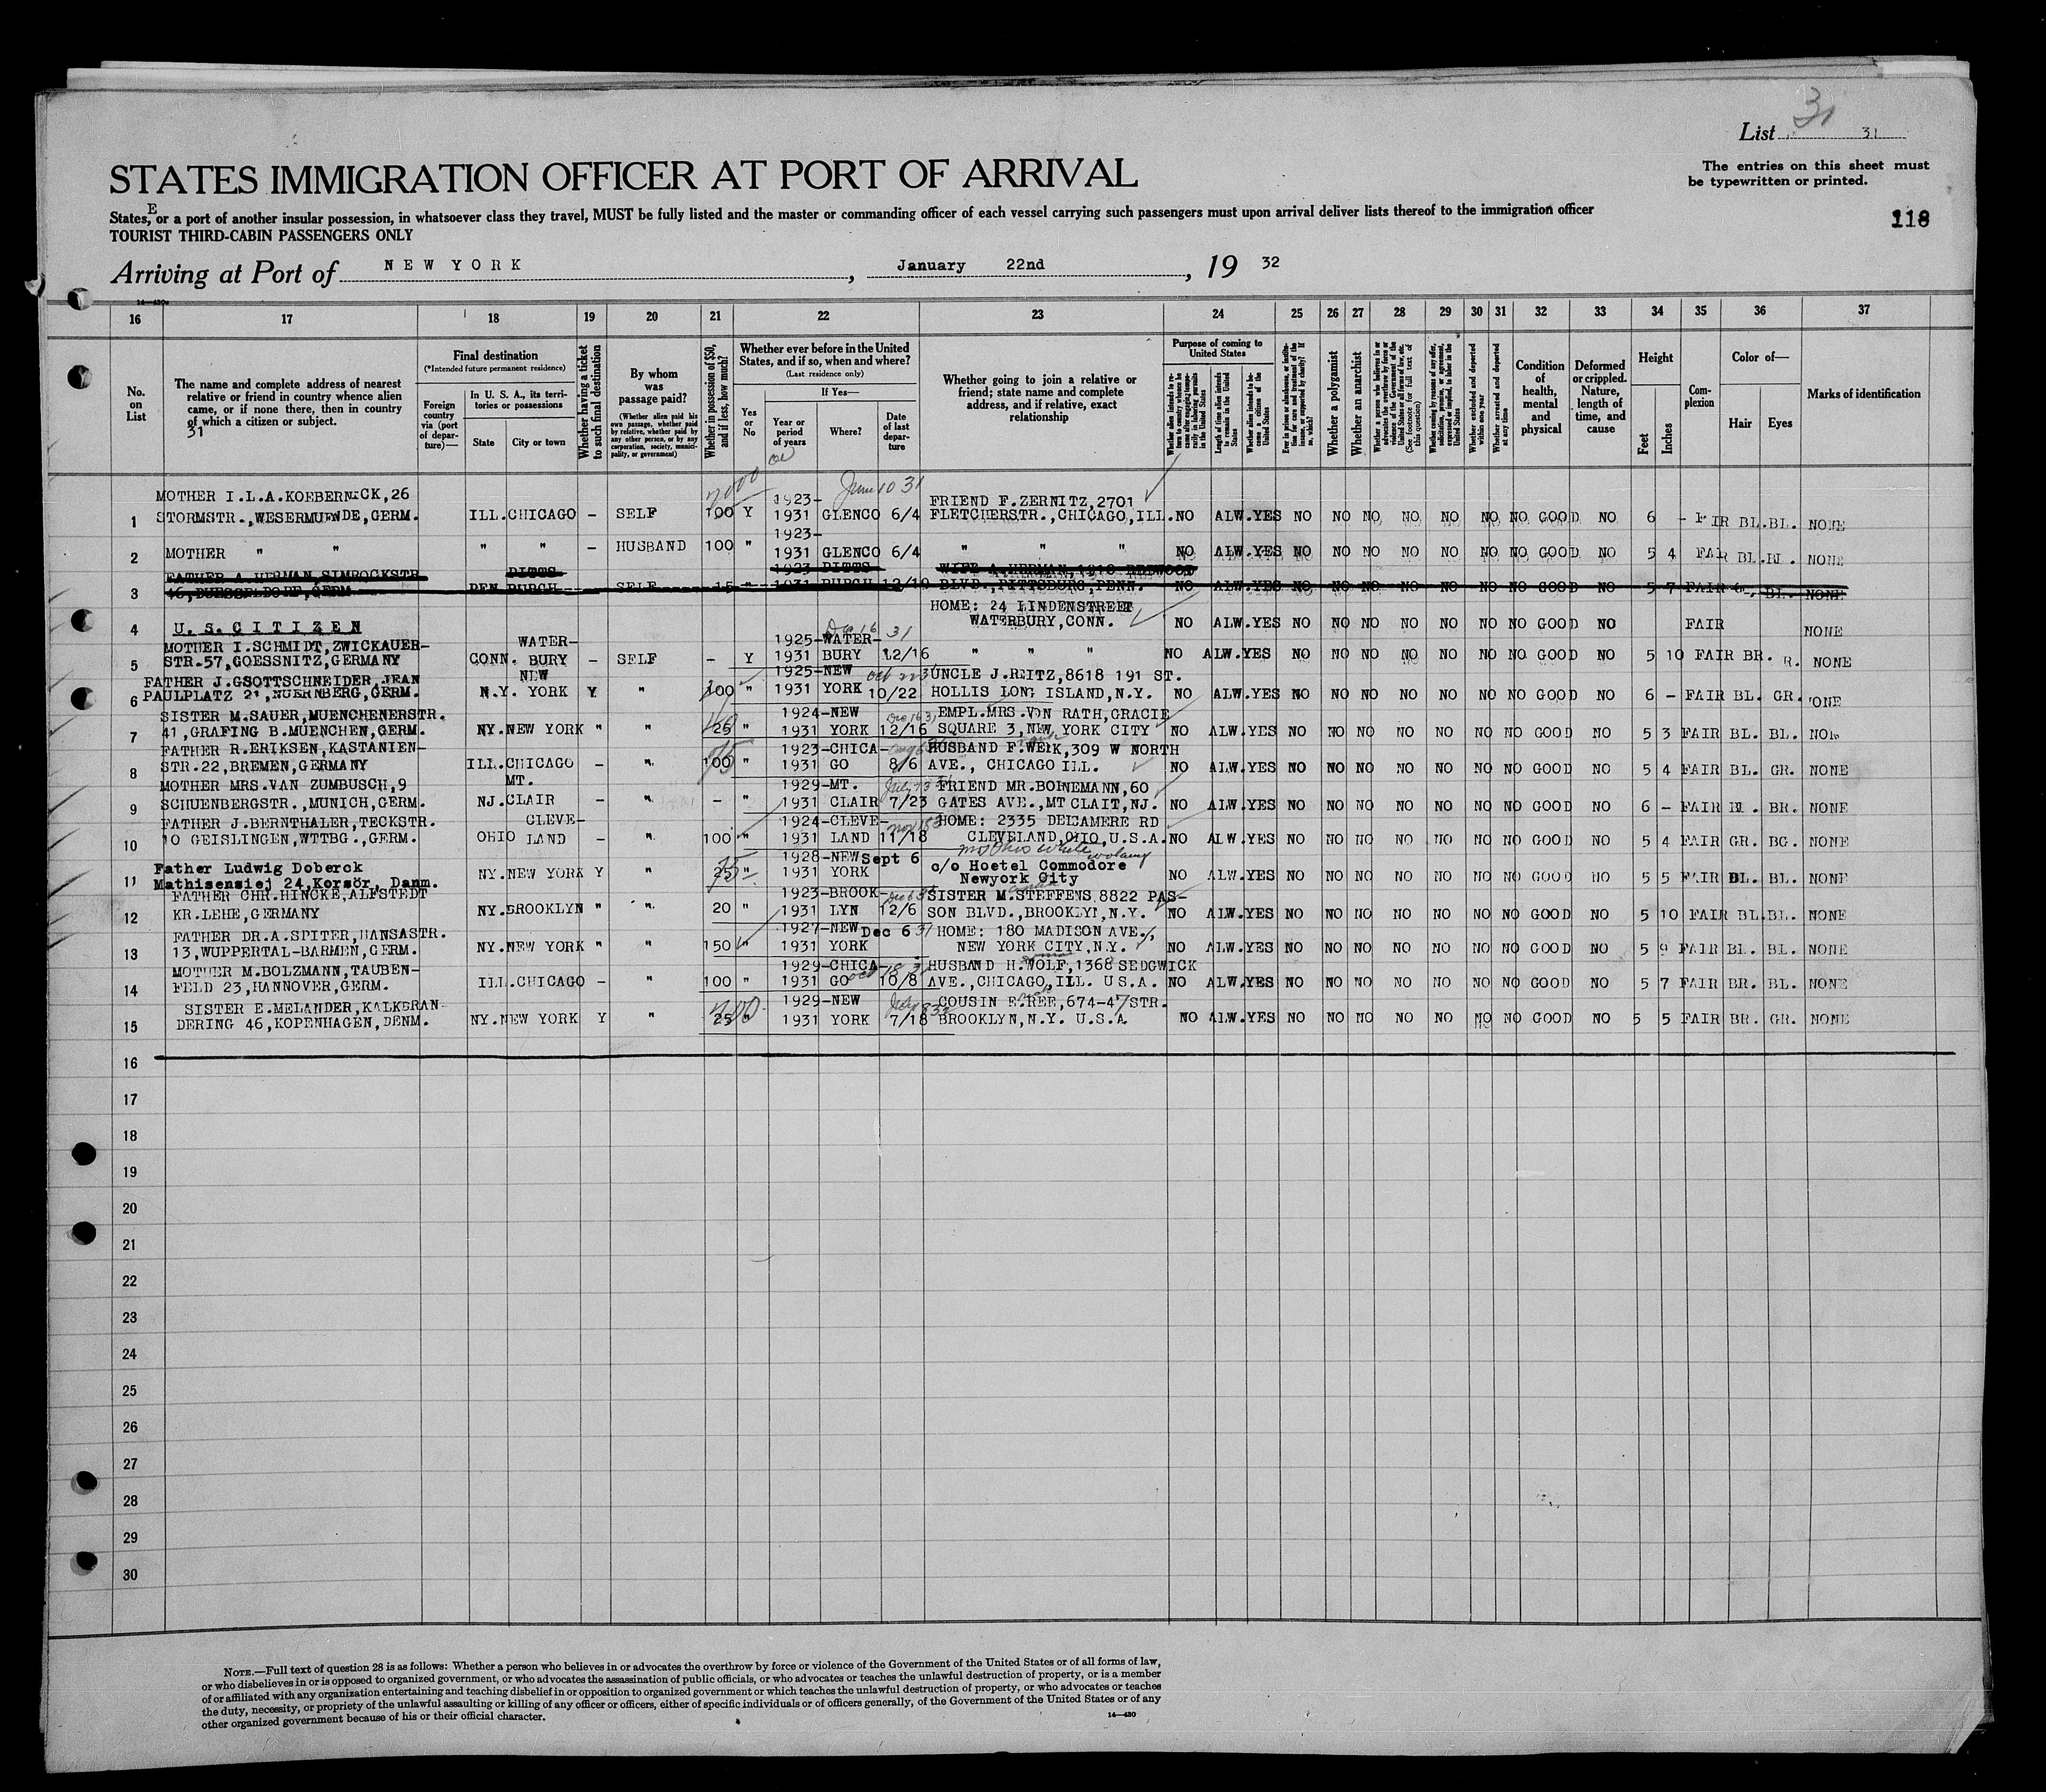 31
List 31
STATES IMMIGRATION OFFICER AT PORT OF ARRIVAL
The entries on this sheet must
be typewritten or printed.
E
States, or a port of another insular possession, in whatsoever class they travel, MUST be fully listed and the master or commanding officer of each vessel carrying such passengers must upon arrival deliver lists thereof to the immigration officer
118
TOURIST THIRD-CABIN PASSENGERS ONLY
Arriving at Port of NEW YORK, January 22nd, 19 32
16 17 18 19 20 21 22 23 24 25 26 27 28 29 30 31 32 33 34 35 36 37
No. on List
The name and complete address of nearest
relative or friend in country whence alien
came, or if none there, then in country
of which a citizen or subject.
31
Final destination
(*Intended future permanent residence)
Foreign country via (port of departure)—
In U. S. A., its territories or possessions
State
City or town
Whether having a ticket to such final destination
By whom was passage paid?
(Whether alien paid his own passage, whether paid by relative, whether paid by any other person, or by any corporation, society, municipality, or government)
Whether in possession of $50, and if less, how much?
Whether ever before in the United
States, and if so, when and where?
(Last residence only)
Yes or No
If Yes—
Year or period of years
Where?
Date of last departure
Whether going to join a relative or
friend; state name and complete
address, and if relative, exact
relationship
Purpose of coming to United States
Length of time alien intends to remain in the United States
Whether alien intends to become a citizen of the United States
Whether a polygamist
Whether an anarchist
Whether excluded and deported within one year
Whether arrested and deported at any time
Condition of health, mental and physical
Deformed or crippled. Nature, length of time, and cause
Height
Feet
Inches
Complexion
Color of—
Hair
Eyes
Marks of identification
MOTHER I.L.A.KOEBERNICK,26 1923- June 10 31 FRIEND F.ZERNITZ,2701
1 STORMSTR.,WESERMUENDE,GERM. ILL. CHICAGO - SELF 100 Y 1931 GLENCO 6/4 FLETCHERSTR.,CHICAGO,ILL. NO ALW. YES NO NO NO NO NO NO NO GOOD NO 6 - FAIR BL. BL. NONE
1923-
2 MOTHER " " " " - HUSBAND 100 " 1931 GLENCO 6/4 " " " NO ALW. YES NO NO NO NO NO NO NO GOOD NO 5 4 FAIR BL. BL. NONE
FATHER A.HERMAN,SIMROCKSTR. PITTS 1923 PITTS WIFE A.HERMAN,1918 REDWOOD
3 46,DUESSELDORF,GERM PEN BURGH SELF 15 " 1931 BURGH 12/19 BLVD.,PITTSBURG,PENN. NO ALW. YES NO NO NO NO NO NO NO GOOD NO 5 7 FAIR BL. NONE
HOME: 24 LINDENSTREET
4 U.S.CITIZEN WATERBURY,CONN. NO ALW. YES NO NO NO NO NO NO NO GOOD NO FAIR NONE
MOTHER I.SCHMIDT,ZWICKAUER- WATER- 1925-WATER- Dec 16 31
5 STR.57,GOESSNITZ,GERMANY CONN. BURY - SELF - Y 1931 BURY 12/16 " " " NO ALW. YES NO NO NO NO NO NO NO GOOD NO 5 10 FAIR BR. R. NONE
FATHER J.GSOTTSCHNEIDER,JEAN NEW 1925-NEW UNCLE J.REITZ,8618 191 ST.
6 PAULPLATZ 21,NUERNBERG,GERM. N.Y. YORK Y " 100 " 1931 YORK 10/22 HOLLIS LONG ISLAND,N.Y. NO ALW. YES NO NO NO NO NO NO NO GOOD NO 6 - FAIR BL. GR. ONE
SISTER M.SAUER,MUENCHENERSTR. 1924-NEW Dec 16 31 EMPL.MRS.VON RATH,GRACIE
7 41,GRAFING B.MUENCHEN,GERM. NY. NEW YORK " " 25 " 1931 YORK 12/16 SQUARE 3,NEW YORK CITY NO ALW. YES NO NO NO NO NO NO NO GOOD NO 5 3 FAIR BL. BL. NON
FATHER R.ERIKSEN,KASTANIEN- 1923-CHICA- HUSBAND F.WEIK,309 W NORTH
8 STR.22,BREMEN,GERMANY ILL. CHICAGO - " 100 " 1931 GO 8/6 AVE., CHICAGO ILL. NO ALW. YES NO NO NO NO NO NO NO GOOD NO 5 4 FAIR BL. GR. NONE
MOTHER MRS.VAN ZUMBUSCH,9 MT. 1929-MT. FRIEND MR.BOINEMANN,60
9 SCHUENBERGSTR.,MUNICH,GERM. NJ. CLAIR - " - " 1931 CLAIR 7/23 GATES AVE.,MT CLAIT,NJ. NO ALW. YES NO NO NO NO NO NO NO GOOD NO 6 - FAIR BL. BR. NONE
FATHER J.BERNTHALER,TECKSTR. CLEVE- 1924-CLEVE- HOME: 2335 DELCAMERE RD
10 10 GEISLINGEN,WTTBG.,GERM. OHIO LAND - " 100 " 1931 LAND 11/18 CLEVELAND,OHIO,U.S.A. NO ALW. YES NO NO NO NO NO NO NO GOOD NO 5 4 FAIR GR. BG. NONE
Father Ludwig Doberck 1928-NEW Sept 6 c/o Hoetel Commodore
11 Mathisensiej 24,Korsör, Danm. NY. NEW YORK Y " 25 " 1931 YORK Newyork City NO ALW. YES NO NO NO NO NO NO NO GOOD NO 5 5 FAIR BL. BL. NONE
FATHER CHR.HINCKE,ALFSTEDT 1923-BROOK- SISTER M.STEFFENS 8822 PAS-
12 KR.LEHE,GERMANY NY. BROOKLYN " " 20 " 1931 LYN 12/6 SON BLVD.,BROOKLYN,N.Y. NO ALW. YES NO NO NO NO NO NO NO GOOD NO 5 10 FAIR BL. BL. NONE
FATHER DR.A.SPITER,HANSASTR. 1927-NEW Dec 6 31 HOME: 180 MADISON AVE.,
13 13,WUPPERTAL-BARMEN,GERM. NY. NEW YORK " " 150 " 1931 YORK NEW YORK CITY,N.Y. NO ALW. YES NO NO NO NO NO NO NO GOOD NO 5 9 FAIR BL. BL. NONE
MOTHER M.BOLZMANN,TAUBEN- 1929-CHICA- HUSBAND H.WOLF,1368 SEDGWICK
14 FELD 23,HANNOVER,GERM. ILL. CHICAGO - " 100 " 1931 GO 10/8 AVE.,CHICAGO,ILL. USA. NO ALW. YES NO NO NO NO NO NO NO GOOD NO 5 7 FAIR BR. BL. NONE
SISTER E.MELANDER,KALKBRAN- 1929-NEW COUSIN E.REE,674-47 STR.
15 DERING 46,KOPENHAGEN,DENM. NY. NEW YORK Y " 25 " 1931 YORK 7/18 BROOKLYN,N.Y. U.S.A NO ALW. YES NO NO NO NO NO NO NO GOOD NO 5 5 FAIR BR. GR. NONE
16
17
18
19
20
21
22
23
24
25
26
27
28
29
30
NOTE.—Full text of question 28 is as follows: Whether a person who believes in or advocates the overthrow by force or violence of the Government of the United States or of all forms of law,
or who disbelieves in or is opposed to organized government, or who advocates the assassination of public officials, or who advocates or teaches the unlawful destruction of property, or is a member
of or affiliated with any organization entertaining and teaching disbelief in or opposition to organized government or which teaches the unlawful destruction of property, or who advocates or teaches
the duty, necessity, or propriety of the unlawful assaulting or killing of any officer or officers, either of specific individuals or of officers generally, of the Government of the United States or of any
other organized government because of his or their official character.
14—430